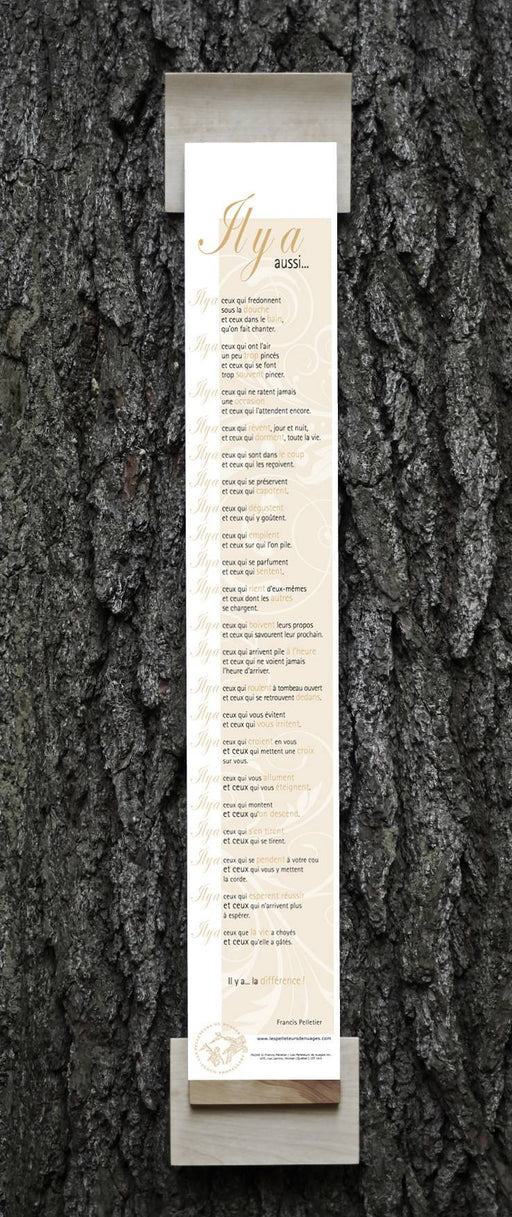 Il y a
aussi...
Il y a ceux qui fredonnent
sous la douche
et ceux dans le bain,
qu'on fait chanter.
Il y a ceux qui ont l'air
un peu trop pincés
et ceux qui se font
trop souvent pincer.
Il y a ceux qui ne ratent jamais
une occasion
et ceux qui l'attendent encore.
Il y a ceux qui rêvent, jour et nuit,
et ceux qui dorment, toute la vie.
Il y a ceux qui sont dans le coup
et ceux qui les reçoivent.
Il y a ceux qui se préservent
et ceux qui capotent.
Il y a ceux qui dégustent
et ceux qui y goûtent.
Il y a ceux qui empilent
et ceux sur qui l'on pile.
Il y a ceux qui se parfument
et ceux qui sentent.
Il y a ceux qui rient d'eux-mêmes
et ceux dont les autres
se chargent.
Il y a ceux qui boivent leurs propos
et ceux qui savourent leur prochain.
Il y a ceux qui arrivent pile à l'heure
et ceux qui ne voient jamais
l'heure d'arriver.
Il y a ceux qui roulent à tombeau ouvert
et ceux qui se retrouvent dedans.
Il y a ceux qui vous évitent
et ceux qui vous irritent.
Il y a ceux qui croient en vous
et ceux qui mettent une croix
sur vous.
Il y a ceux qui vous allument
et ceux qui vous éteignent.
Il y a ceux qui montent
et ceux qu'on descend.
Il y a ceux qui s'en tirent
et ceux qui se tirent.
Il y a ceux qui se pendent à votre cou
et ceux qui vous y mettent
la corde.
Il y a ceux qui espèrent réussir
et ceux qui n'arrivent plus
à espérer.
Il y a ceux que la vie a choyés
et ceux qu'elle a gâtés.
Il y a... la différence !
Francis Pelletier
www.lespelleteursdenuages.com